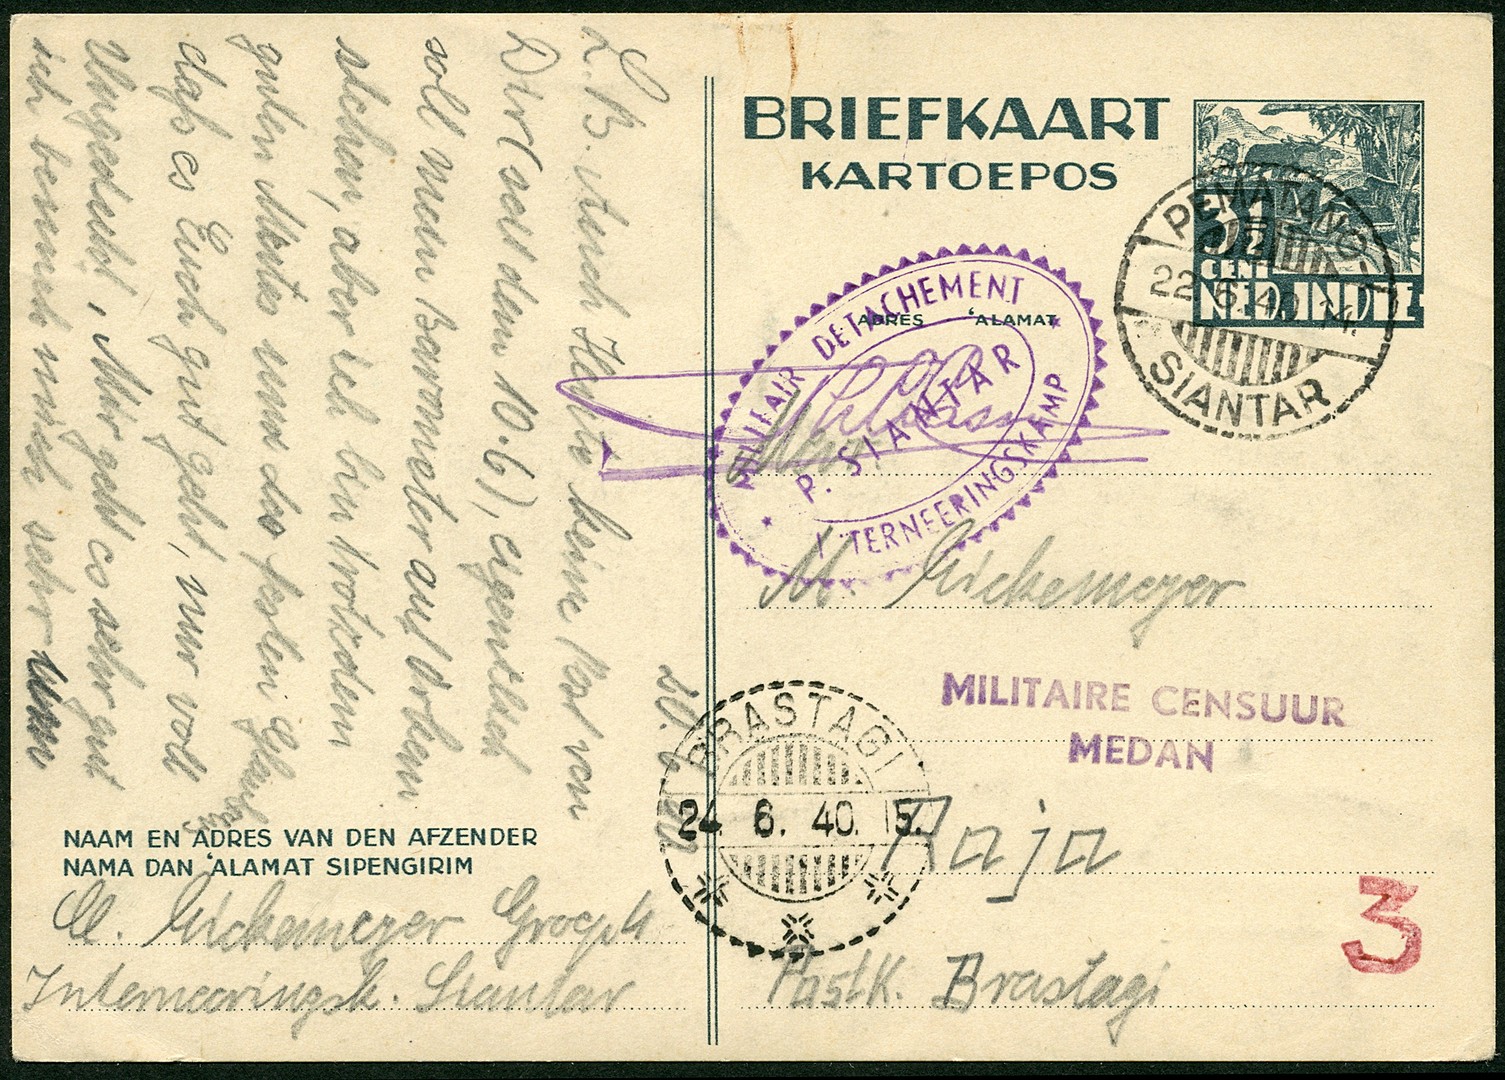 BRIEFKAART
KARTOEPOS
3½
CENT
NED. INDIE
PEMATANG
22.6.40.14.
SIANTAR
ADRES 'ALAMAT
MILITAIR DETACHEMENT
P. SIANTAR
INTERNEERINGSKAMP
M. Eickemeyer
MILITAIRE CENSUUR
MEDAN
Raja
Postk. Brastagi
3
BRASTAGI
24. 6. 40. 15.
20. 6.
L. B. Auch Heute keine Post von
Dir (seit dem 10.6), eigentlich
soll mein Barometer auf Orkan
stehen, aber ich bin trotzdem
guten Mutes und des festen Glaubens
daß es Euch gut geht, nur voll
Ungeduld, Mir geht es sehr gut
ich bemüh mich sehr um
NAAM EN ADRES VAN DEN AFZENDER
NAMA DAN 'ALAMAT SIPENGIRIM
Eickemeyer Groep
Interneeringsk. Siantar